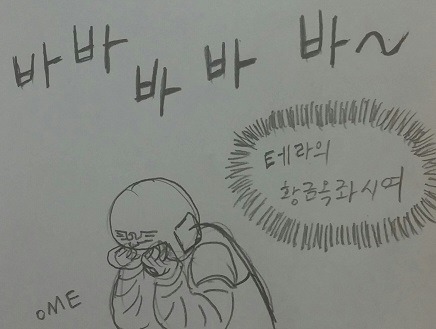 바바바바 바~
테라의
황금옥좌시여
OME